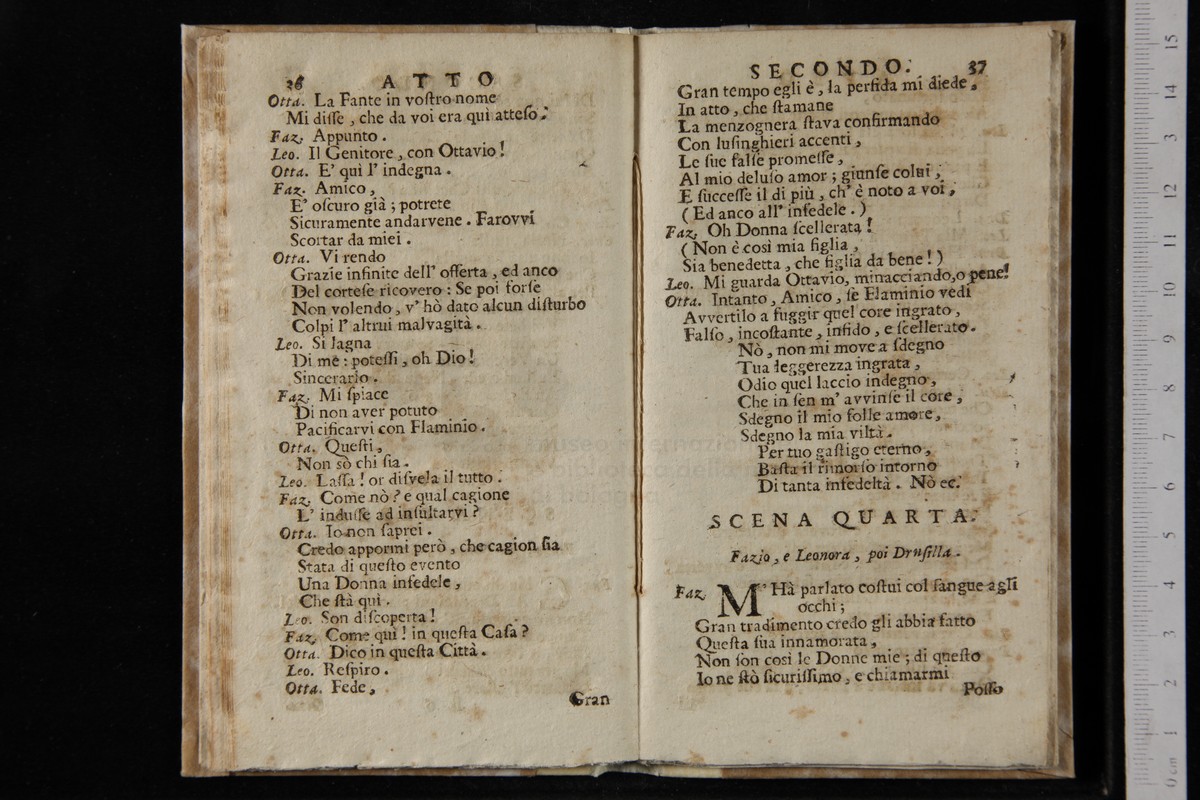 36 ATTO
Otta. La Fante in voſtro nome
Mi diſſe , che da voi era qui atteſo .
Faz. Appunto .
Leo. Il Genitore , con Ottavio !
Otta. E' quì l' indegna .
Faz. Amico ,
E' oſcuro già ; potrete
Sicuramente andarvene . Farovvi
Scortar da miei .
Otta. Vi rendo
Grazie infinite dell' offerta , ed anco
Del corteſe ricovero : Se poi forſe
Non volendo , v' hò dato alcun diſturbo
Colpi l' altrui malvagità .
Leo. Si lagna
Di me : poteſſi , oh Dio !
Sincerarlo .
Faz. Mi ſpiace
Di non aver potuto
Pacificarvi con Flaminio .
Otta. Queſti ,
Non sò chi ſia .
Leo. Laſſa ! or diſvela il tutto .
Faz. Come nò ? e qual cagione
L' induſſe ad inſultarvi ?
Otta. Io non ſaprei .
Credo appormi però , che cagion ſia
Stata di queſto evento
Una Donna infedele ,
Che ſtà quì .
Leo. Son diſcoperta !
Faz. Come quì ! in queſta Caſa ?
Otta. Dico in queſta Città .
Leo. Reſpiro .
Otta. Fede ,
Gran
SECONDO. 37
Gran tempo egli è , la perfida mi diede ,
In atto , che ſtamane
La menzognera ſtava confirmando
Con luſinghieri accenti ,
Le ſue falſe promeſſe ,
Al mio deluſo amor ; giunſe colui ,
E ſucceſſe il di più , ch' è noto a voi ,
( Ed anco all' infedele . )
Faz. Oh Donna ſcellerata !
( Non è così mia figlia ,
Sia benedetta , che figlia da bene ! )
Leo. Mi guarda Ottavio, minacciando,o pene!
Otta. Intanto , Amico , ſe Flaminio vedi
Avvertilo a fuggir quel core ingrato ,
Falſo , incoſtante , infido , e ſcellerato .
Nò , non mi move a ſdegno
Tua leggerezza ingrata ,
Odio quel laccio indegno ,
Che in ſen m' avvinſe il core ,
Sdegno il mio folle amore ,
Sdegno la mia viltà .
Per tuo gaſtigo eterno ,
Baſta il rimorſo intorno
Di tanta infedeltà . Nò ec.
SCENA QUARTA.
Fazio , e Leonora , poi Druſilla .
Faz. M' Hà parlato coſtui col ſangue agli
occhi ;
Gran tradimento credo gli abbia fatto
Queſta ſua innamorata ,
Non ſon così le Donne mie ; di queſto
Io ne ſtò ſicuriſſimo , e chiamarmi
Poſſo